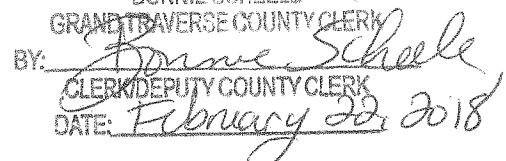 BONNIE SCHEELE
GRAND TRAVERSE COUNTY CLERK
BY: Bonnie Scheele
CLERK/DEPUTY COUNTY CLERK
DATE: February 22, 2018